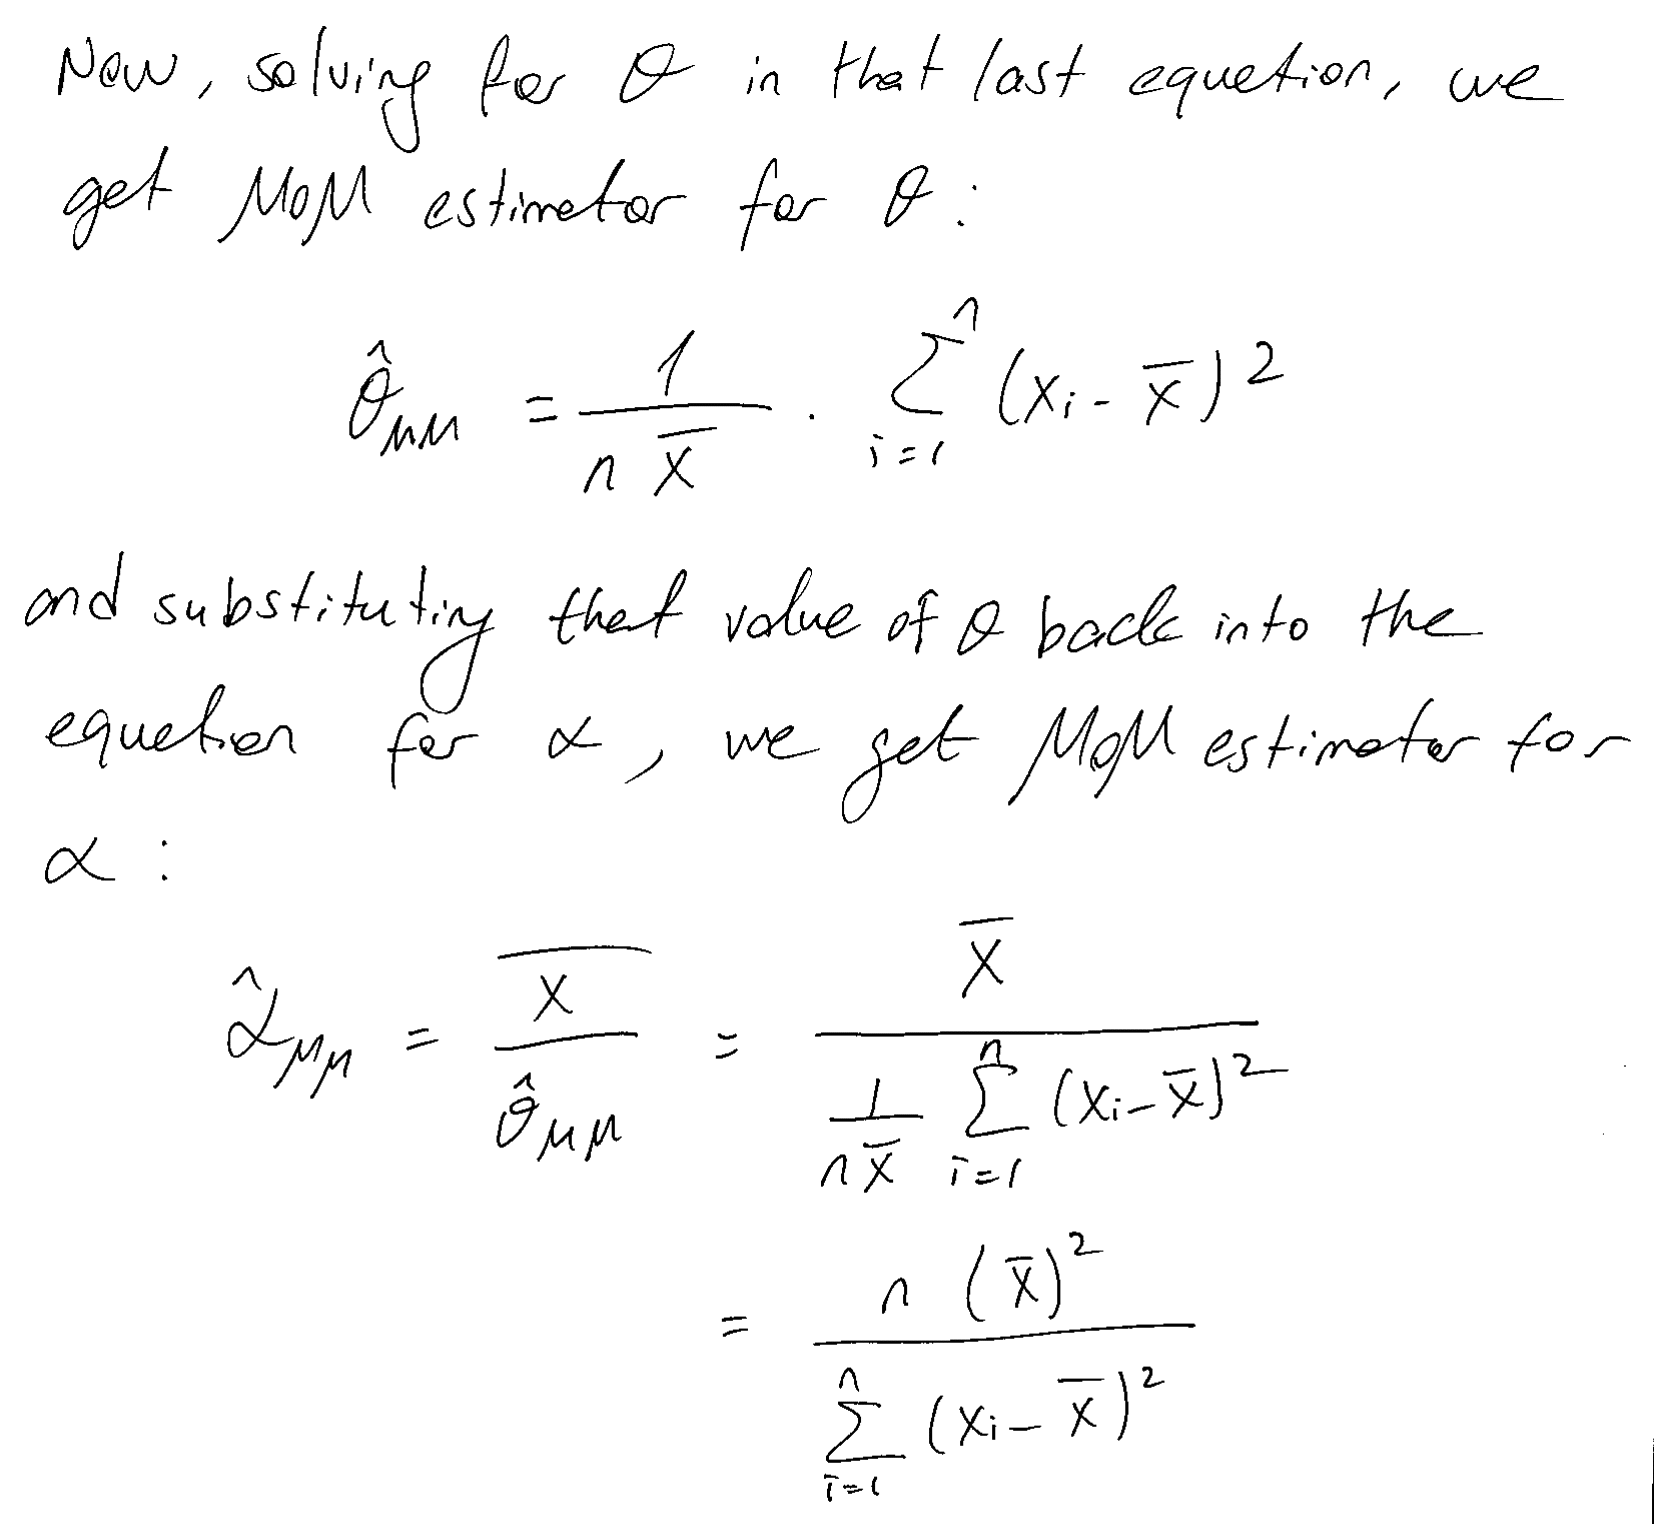 Now, solving for θ in that last equation, we
get MoM estimator for θ :
θ̂_MM = 1/(n X̄) · Σ_{i=1}^{n} (x_i - x̄)²
and substituting that value of θ back into the
equation for α, we get MoM estimator for
α :
α̂_MM = X̄/θ̂_MM = X̄/((1/(n X̄)) Σ_{i=1}^{n} (x_i - x̄)²)
= n (x̄)²/(Σ_{i=1}^{n} (x_i - x̄)²)